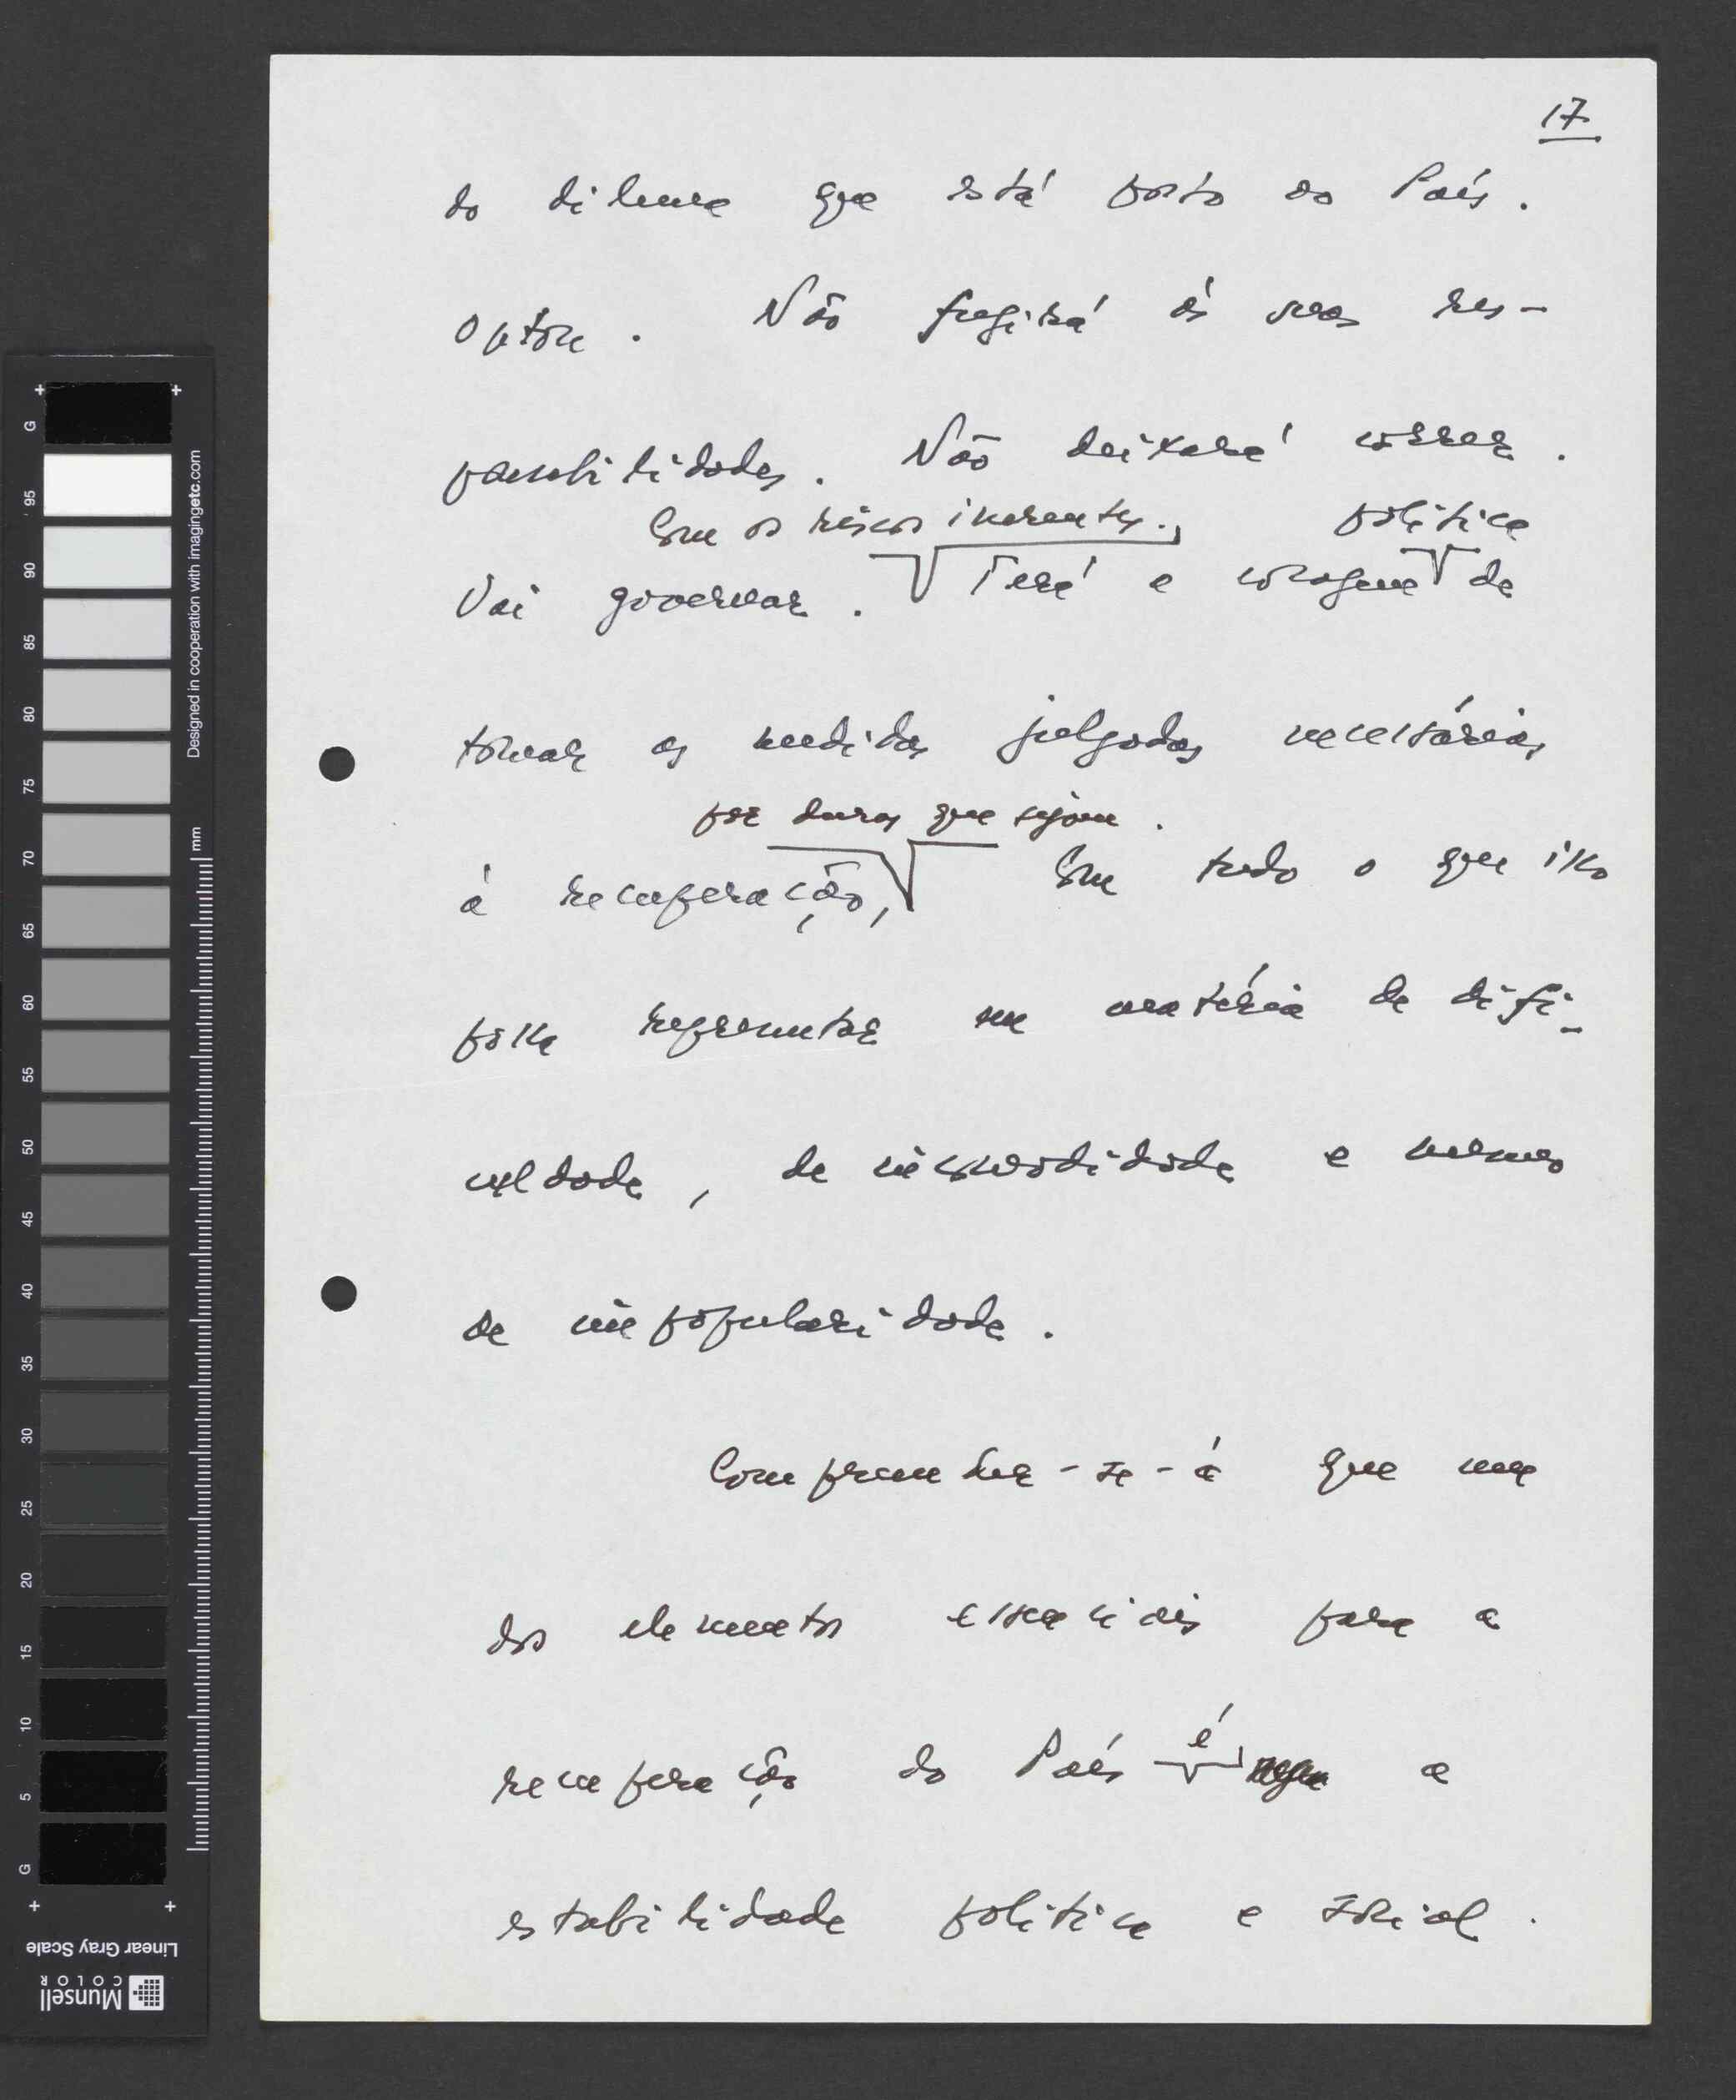 17
do dilema que está posto ao País.
Optou. Não fugirá às suas res-
ponsabilidades. Não deixará correr.
Com os riscos inerentes. política
Vai governar. Terá a coragem de
tomar as medidas julgadas necessárias
por duras que sejam.
à recuperação, Com tudo o que isso
possa representar em matéria de difi-
culdade, de incomodidade e mesmo
de impopularidade.
Compreender-se-á que um
dos elementos essenciais para a
é
recuperação do País a
estabilidade política e social.
G
95
90
85
80
75
70
65
60
55
50
45
40
35
30
25
20
15
10
5
G
mm
Designed in cooperation with imagingetc.com
Linear Gray Scale
Munsell
COLOR